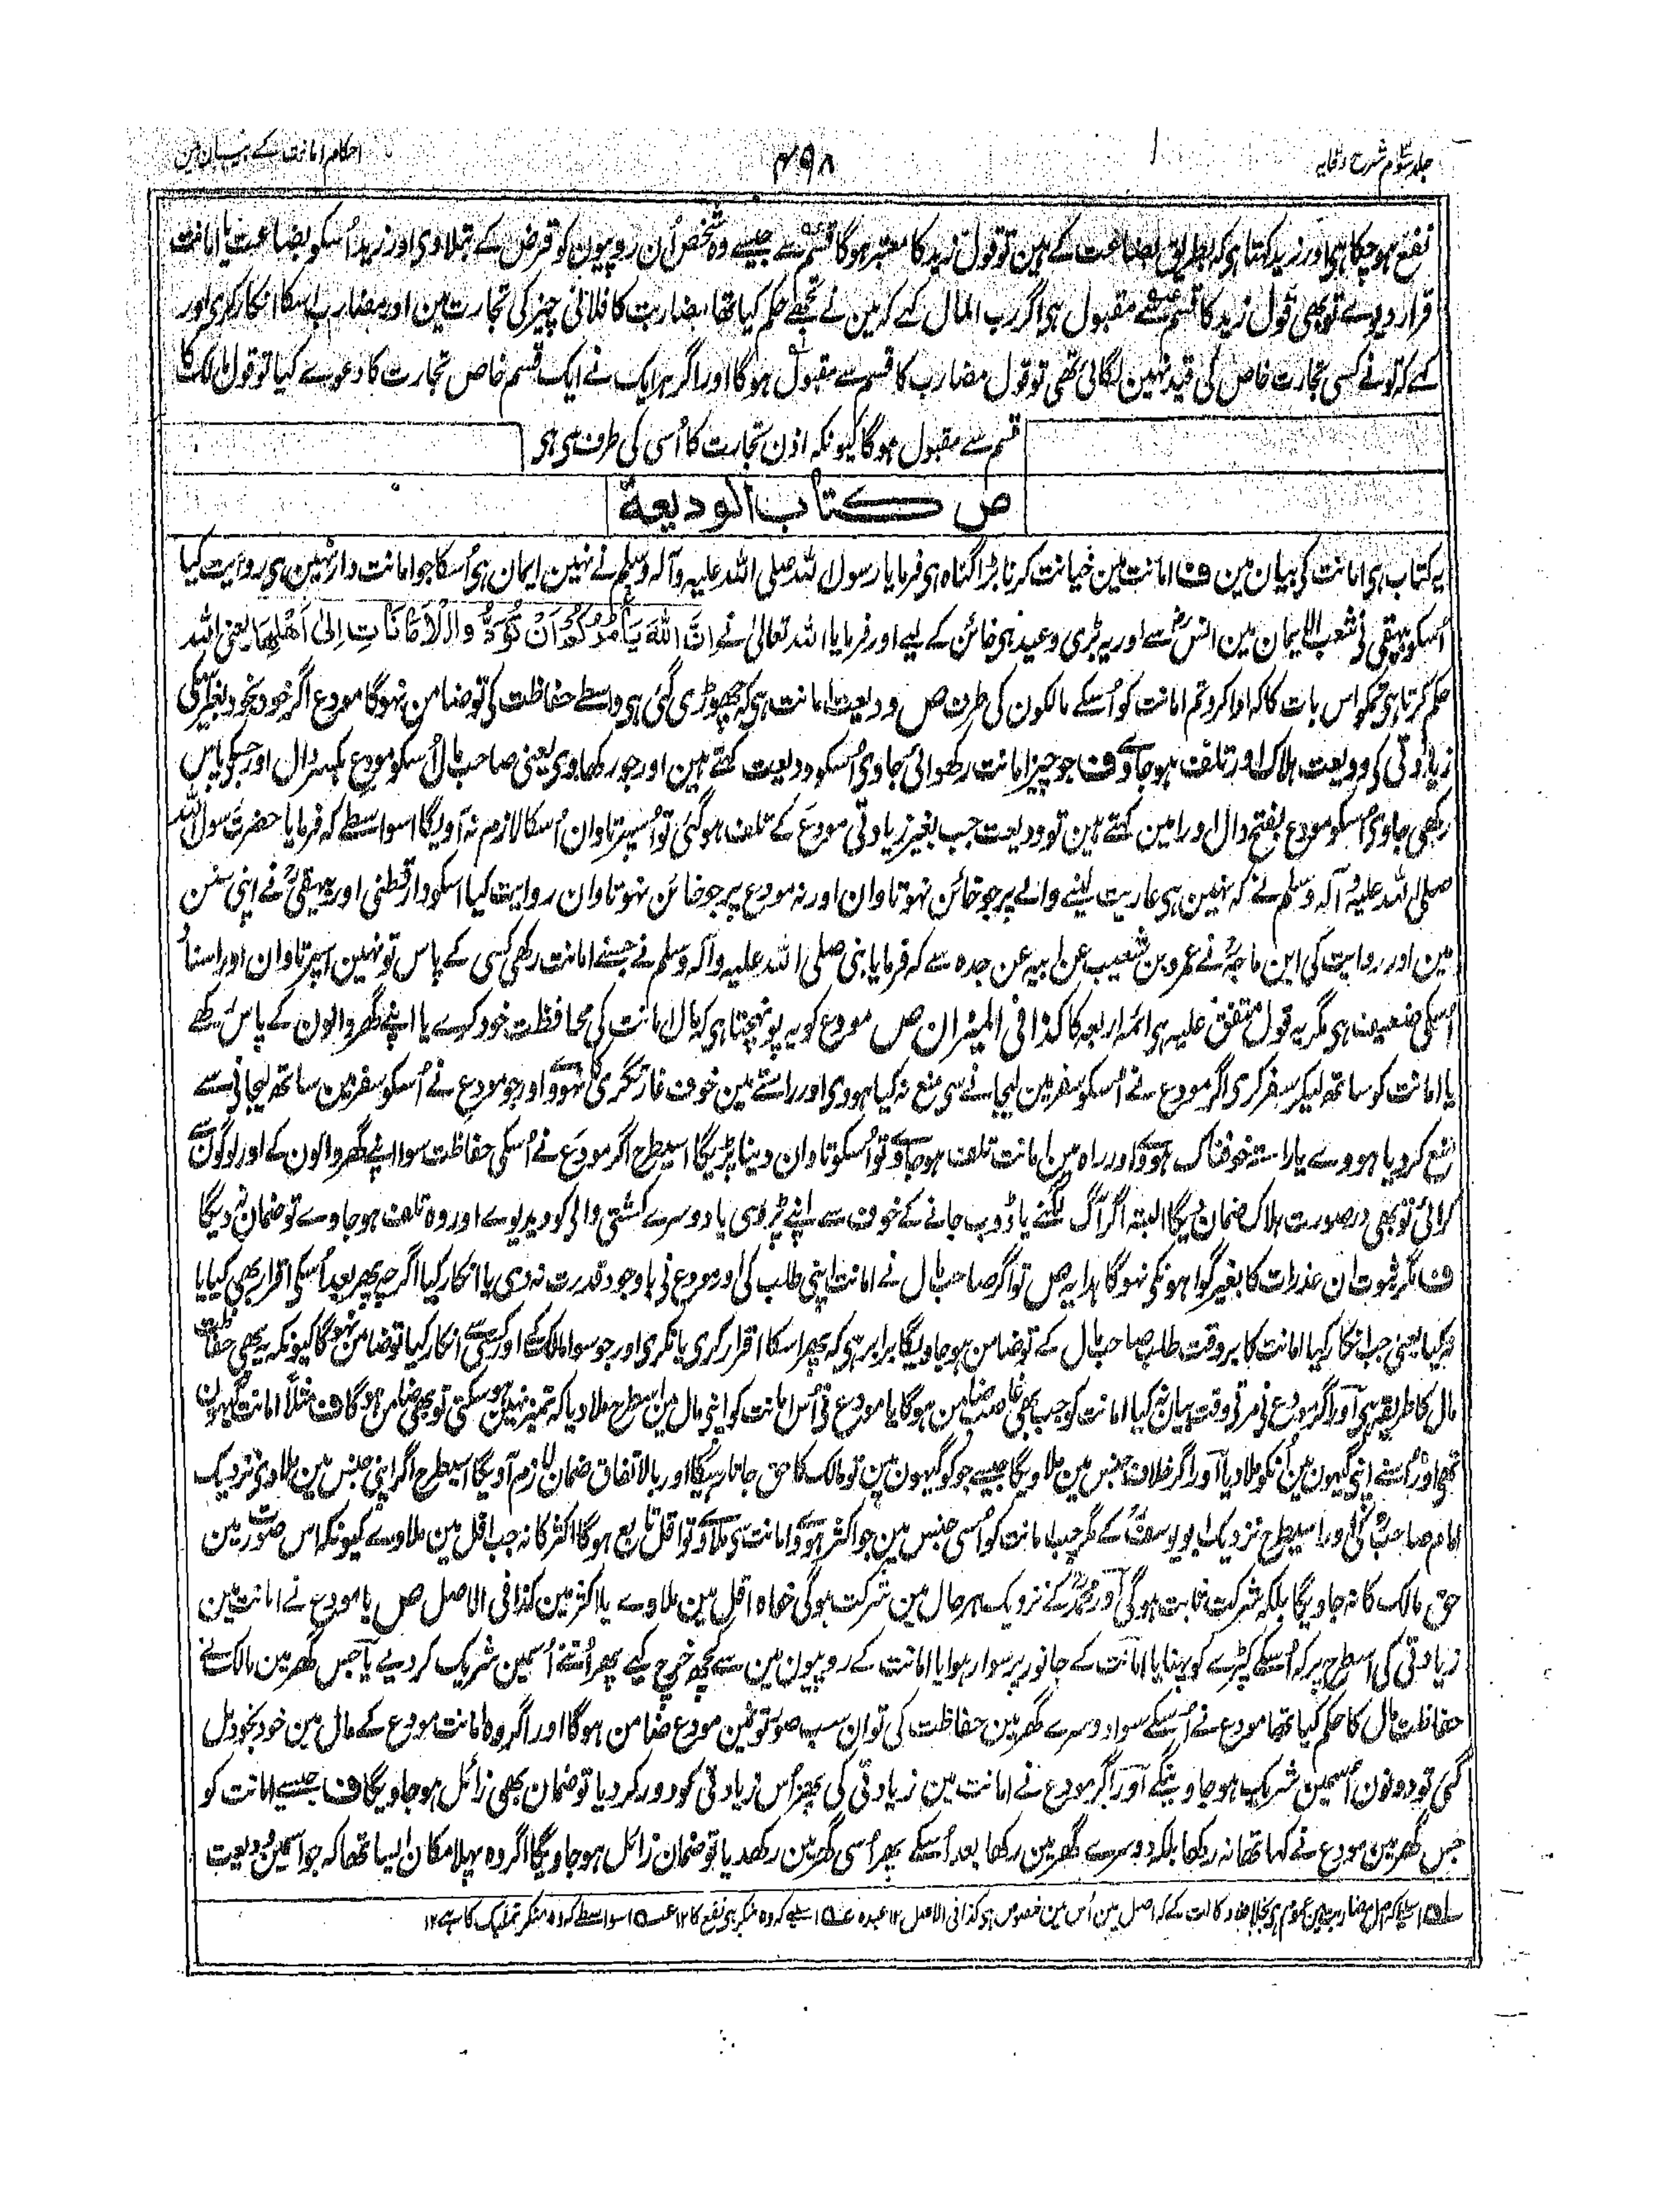 جلد سوم شرح وقایہ
۴۹۸
احکام امانت کے بیان مین
نفع ہو چکا ہی اور زید کہتا ہی کہ بطریق بضاعت کے ہین تو قول زید کا معتبر ہوگا قسم سے جیسے وہ شخص اُن روپیون کو قرض کے بتلاوی اور زید اُسکو بضاعت یا امانت
قرار دیوے تو بھی قول زید کا قسم سے مقبول ہی اگر رب المال کہے کہ مین نے تجھے حکم کیا تھا مضاربت کا فلانی چیز کی تجارت مین اور مضارب اسکا انکار کری اور
کہے کہ تو نے کسی تجارت خاص کی قید نہین لگائی تھی تو قول مضارب کا قسم سے مقبول ہوگا اور اگر ہر ایک نے ایک قسم خاص تجارت کا دعوے کیا تو قول مالک کا
قسم سے مقبول ہوگا کیونکہ اذن تجارت کا اُسی کی طرف سی ہی
ص کتاب الودیعة
یہ کتاب ہی امانت کی بیان مین ف امانت مین خیانت کرنا بڑا گناہ ہی فرمایا رسول اللہ صلی اللہ علیہ وآلہ وسلم نے نہین ایمان ہی اُسکا جو امانت دار نہین ہی روایت کیا
اُسکو بیہقی نی شعب الایمان مین انس رض سے اور یہ بڑی وعید ہی خائن کے لیے اور فرمایا اللہ تعالیٰ نے اِنَّ اللّٰهَ یَأْمُرُکُمْ اَنْ تُؤَدُّوا الْاَمَانَاتِ اِلیٰ اَهْلِهَا یعنی اللہ
حکم کرتا ہی تمکو اس بات کا کہ ادا کرو تم امانت کو اُسکے مالکون کی طرف ص ودیعت امانت ہی کہ چھوڑی گئی ہی واسطے حفاظت کی تو ضامن نہوگا مودع اگر خود بخود بغیر اُسکی
زیادتی کی ودیعت ہلاک اور تلف ہو جاوے ف جو چیز امانت رکھوائی جاوی اُسکو ودیعت کہتے ہین اور جو رکھاوی یعنی صاحب مال اُسکو مودِع بکسر دال اور جسکی پاس
رکھی جاوی اُسکو مودع بفتح دال اور امین کہتے ہین تو ودیعت جب بغیر زیادتی مودَع کے تلف ہو گئی تو اُسپر تاوان اُسکا لازم نہ آویگا اسواسطے کہ فرمایا حضرت رسول اللہ
صلی اللہ علیہ وآلہ وسلم نے کہ نہین ہی عاریت لینے والے پر جو خائن نہو تاوان اور نہ مودع پر جو خائن نہو تاوان روایت کیا اسکو دارقطنی اور بیہقی نے اپنی سنن
مین اور روایت کی ابن ماجہ نے عمرو بن شعیب عن ابیہ عن جدہ سے کہ فرمایا نبی صلی اللہ علیہ وآلہ وسلم نے جسنے امانت رکھی کسی کے پاس تو نہین اُسپر تاوان اور اسناد
اُسکی ضعیف ہی مگر یہ قول متفق علیہ ہی ائمہ اربعہ کا کذا فی المیزان ص مودع کو یہ پونہچتا ہی کہ مال امانت کی محافظت خود کرے یا اپنے گھر والون کے پاس رکھے
یا امانت کو ساتھ لیکر سفر کری اگر مودع نے اُسکو سفر مین لیجانے سی منع نہ کیا ہووی اور راستے مین خوف غارتگری کا نہووے اور جو مودع نے اُسکو سفر مین ساتھ لیجانے سے
منع کردیا ہووے یا راستہ خوفناک ہووے اور راہ مین امانت تلف ہو جاوے تو اُسکو تاوان دینا پڑیگا اسیطرح اگر مودَع نے اُسکی حفاظت سوا اپنے گھر والون کے اور لوگون سے
کرائی تو بھی در صورت ہلاک ضمان دیگا البتہ اگر آگ لگنے یا ڈوب جانے کے خوف سے اپنے پڑوسی یا دوسرے کشتی والی کو دیدیوے اور وہ تلف ہو جاوے تو ضمان نہ دیگا
ف مگر ثبوت ان عذرات کا بغیر گواہونکی نہوگا ہدایہ ص تو اگر صاحب مال نے امانت اپنی طلب کی اور مودع نی باوجود قدرت نہ دی یا انکار کیا اگرچہ پھر بعد اُسکی اقرار بھی کیا یا
نہ کیا یعنی جب انکار کیا امانت کا بروقت طلب صاحب مال کے تو ضامن ہو جاویگا برابر ہی کہ پھر اسکا اقرار کری یا نکری اور جو سوا مالک کے اور کسی سے انکار کیا تو ضامن نہوگا کیونکہ یہ بھی حفاظت
مال کا طریقہ ہی اور اگر مودع نی مرتے وقت بیان نہ کیا امانت کو جب بھی ضامن ہوگا یا مودع نی اُس امانت کو اپنی مال مین اسطرح ملا دیا کہ تمیز نہین ہو سکتی تو بھی ضامن ہوگا ف مثلاً امانت گیہون
تھی اور اُسنے اپنی گیہون مین اُنکو ملا دیا اور اگر خلاف جنس مین ملاویگا جیسے جو کو گیہون مین تو مالک کا حق جاتا رہیگا اور بالاتفاق ضمان لازم آویگا اسیطرح اگر اپنی جنس مین ملاوی نزدیک
امام صاحب کی اور اسیطرح نزدیک ابو یوسف کے مگر جب امانت کو اُسی جنس مین جو اکثر ہووے امانت سی ملاوے تو اقل تابع ہوگا اکثر کا نہ جب اقل مین ملاوے کیونکہ اس صورت مین
حق مالک کا نہ جاویگا بلکہ شرکت ثابت ہوگی اور محمد کے نزدیک ہر حال مین شرکت ہوگی خواہ اقل مین ملاوے یا اکثر مین کذا فی الاصل ص یا مودع نے امانت مین
زیادتی کی اسطرح پر کہ اُسکے کپڑے کو پہنا یا امانت کے جانور پر سوار ہوا یا امانت کے روپیون مین سے کچھ خرچ کیے پھر اُتنے اُسمین شریک کردیے یا جس گھر مین مالک نے
حفاظت مال کا حکم کیا تھا مودع نے اُسکے سوا دوسرے گھر مین حفاظت کی تو ان سب صورتونمین مودع ضامن ہوگا اور اگر وہ امانت مودع کے مال مین خود بخود مل
گئی تو دونون اُسمین شریک ہو جاوینگے اور اگر مودع نے امانت مین زیادتی کی پھر اُس زیادتی کو دور کردیا تو ضمان بھی زائل ہو جاویگا ف جیسے امانت کو
جس گھر مین مودع نے کہا تھا نہ رکھا بلکہ دوسرے گھر مین رکھا بعد اُسکے پھر اُسی گھر مین رکھدیا تو ضمان زائل ہو جاویگا اگر وہ پہلا مکان ایسا تھا کہ جو اُسمین ودیعت
اسلیے کہ اصل مضاربت مین عموم ہی بخلاف وکالت کے کہ اصل مین اُس مین خصوص ہی کذا فی الاصل ۱۲ عبدہ اسلیے کہ وہ منکر ہی نفع کا ۱۲ اسواسطے کہ وہ منکر تملیک کا ہے ۱۲